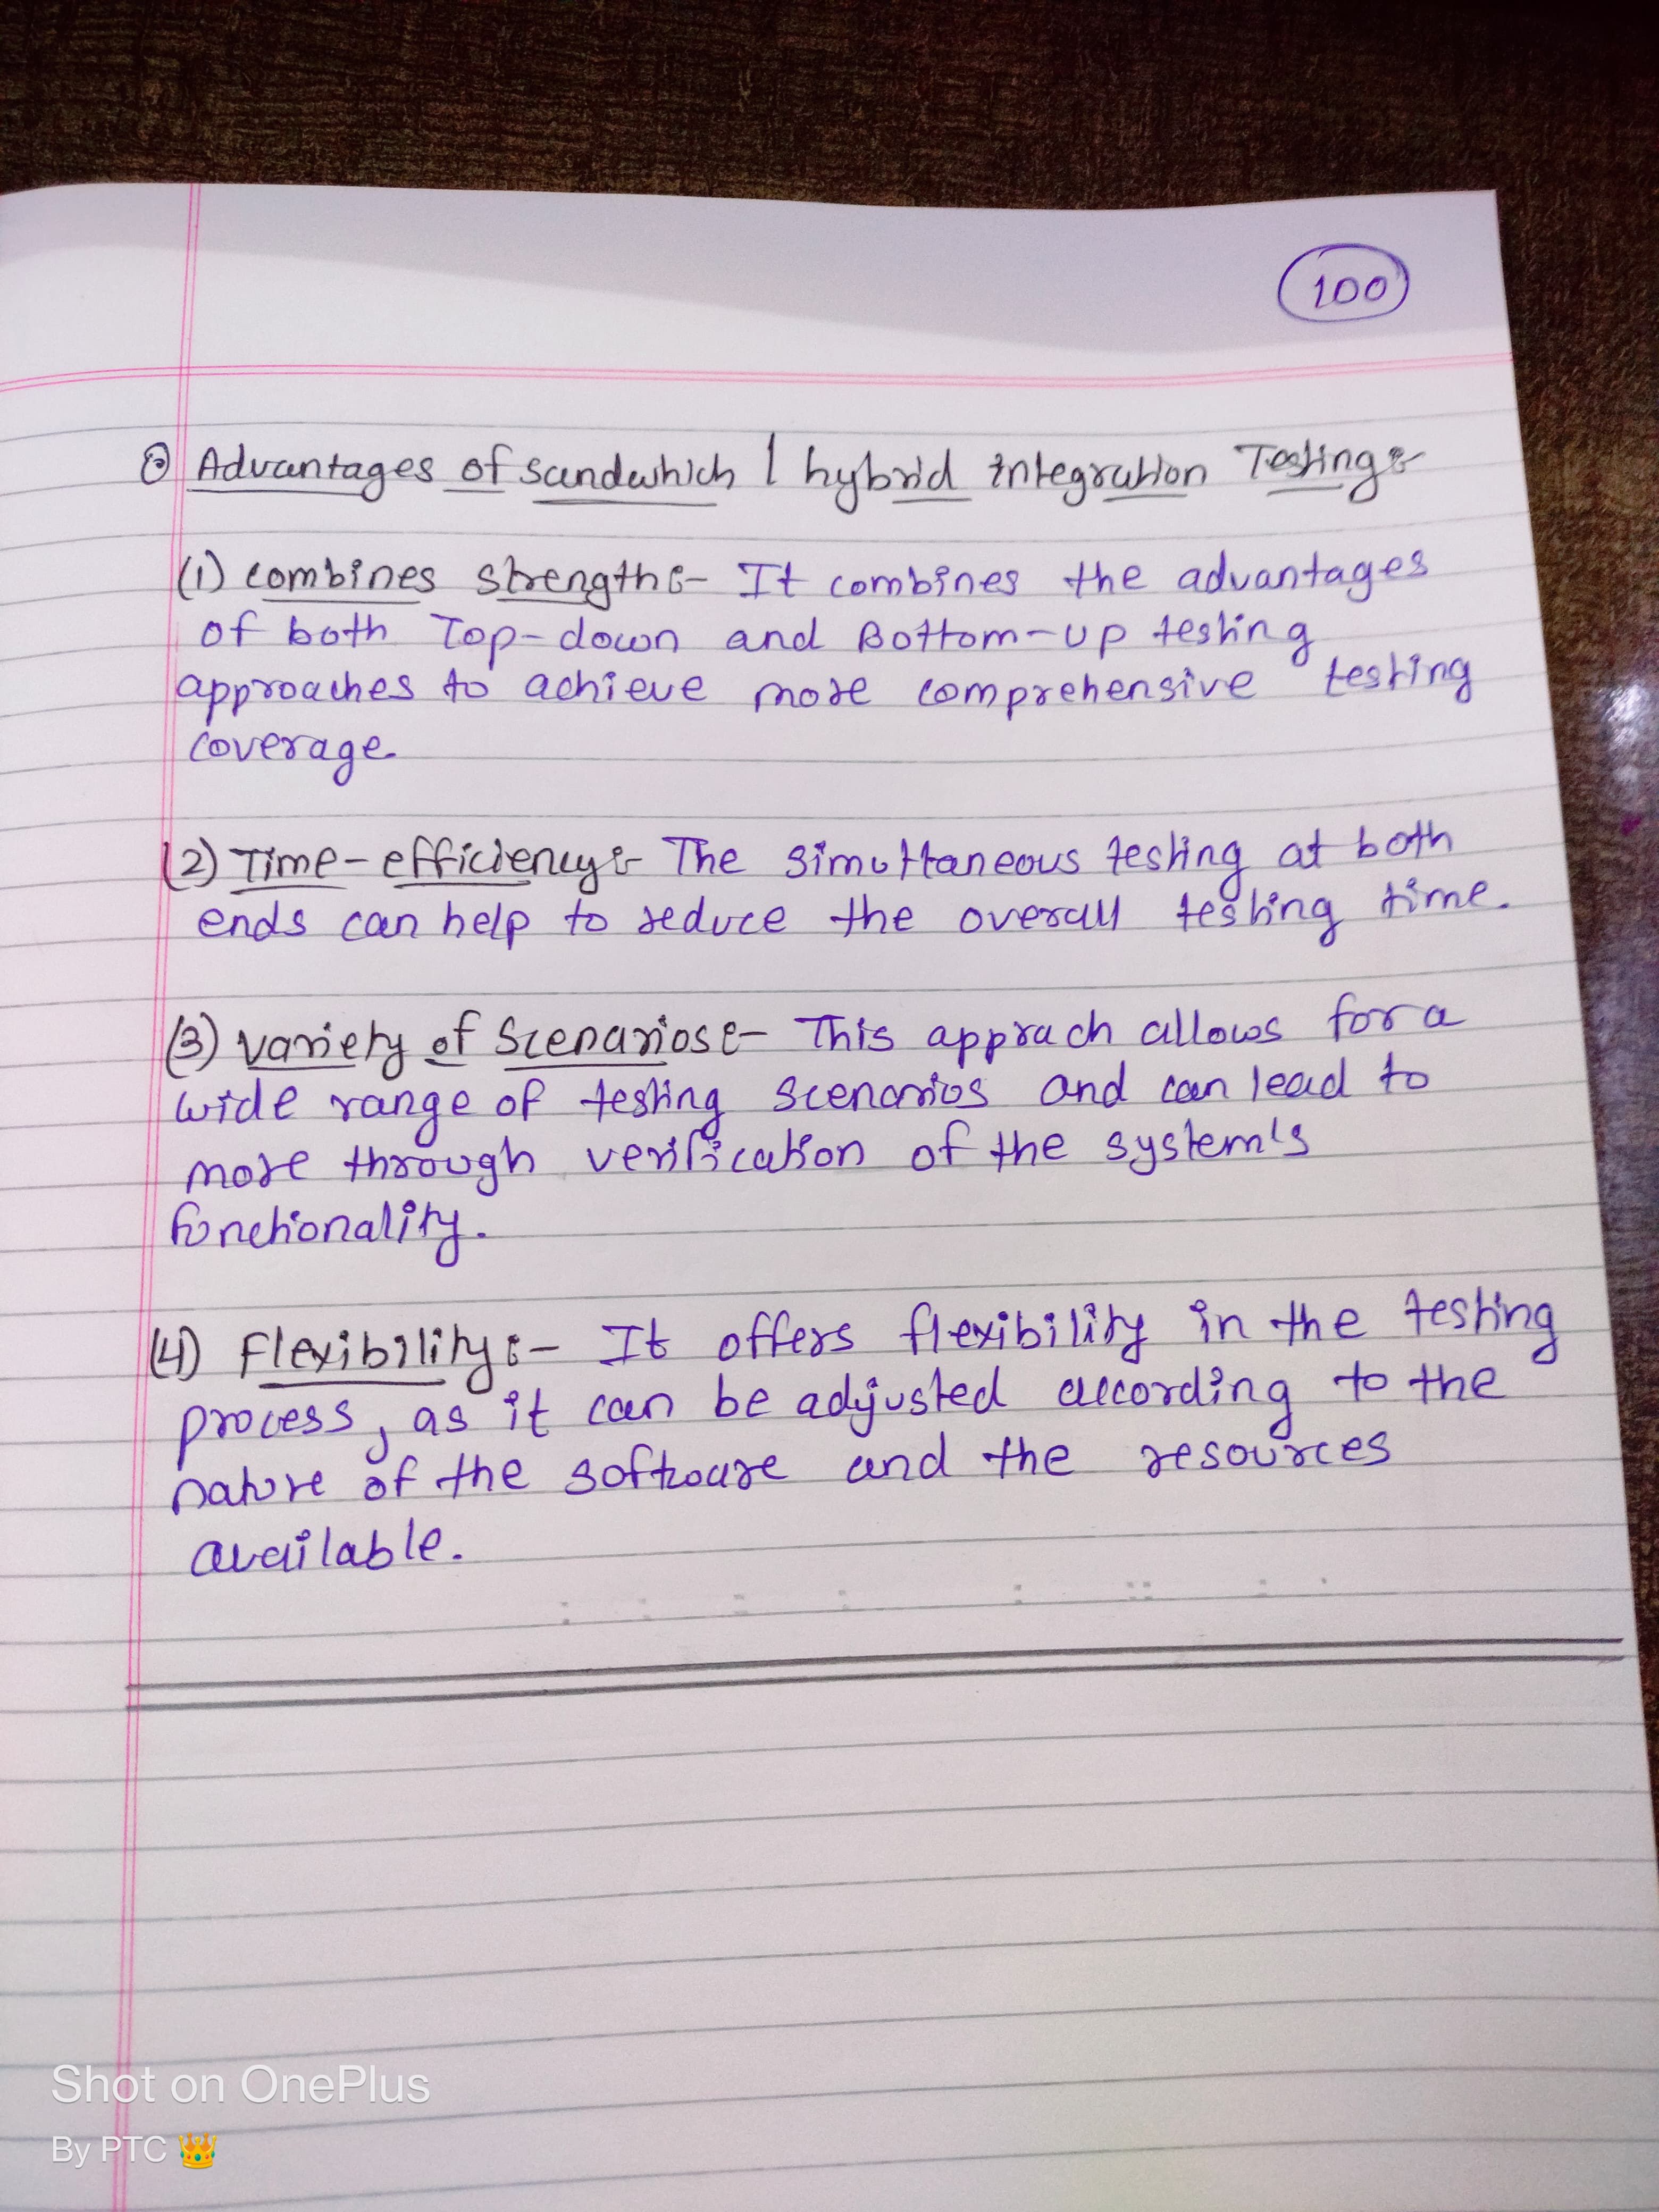 100
⊙ Advantages of sandwhich / hybrid integration Testing:-
(1) combines strength:- It combines the advantages
of both Top-down and Bottom-up testing
approaches to achieve more comprehensive testing
coverage.
(2) Time-efficiency:- The simultaneous testing at both
ends can help to reduce the overall testing time.
(3) variety of Scenarios:- This apprach allows for a
wide range of testing scenarios and can lead to
more through verification of the system's
functionality.
(4) Flexibility:- It offers flexibility in the testing
process, as it can be adjusted according to the
nature of the software and the resources
available.
Shot on OnePlus
By PTC 👑